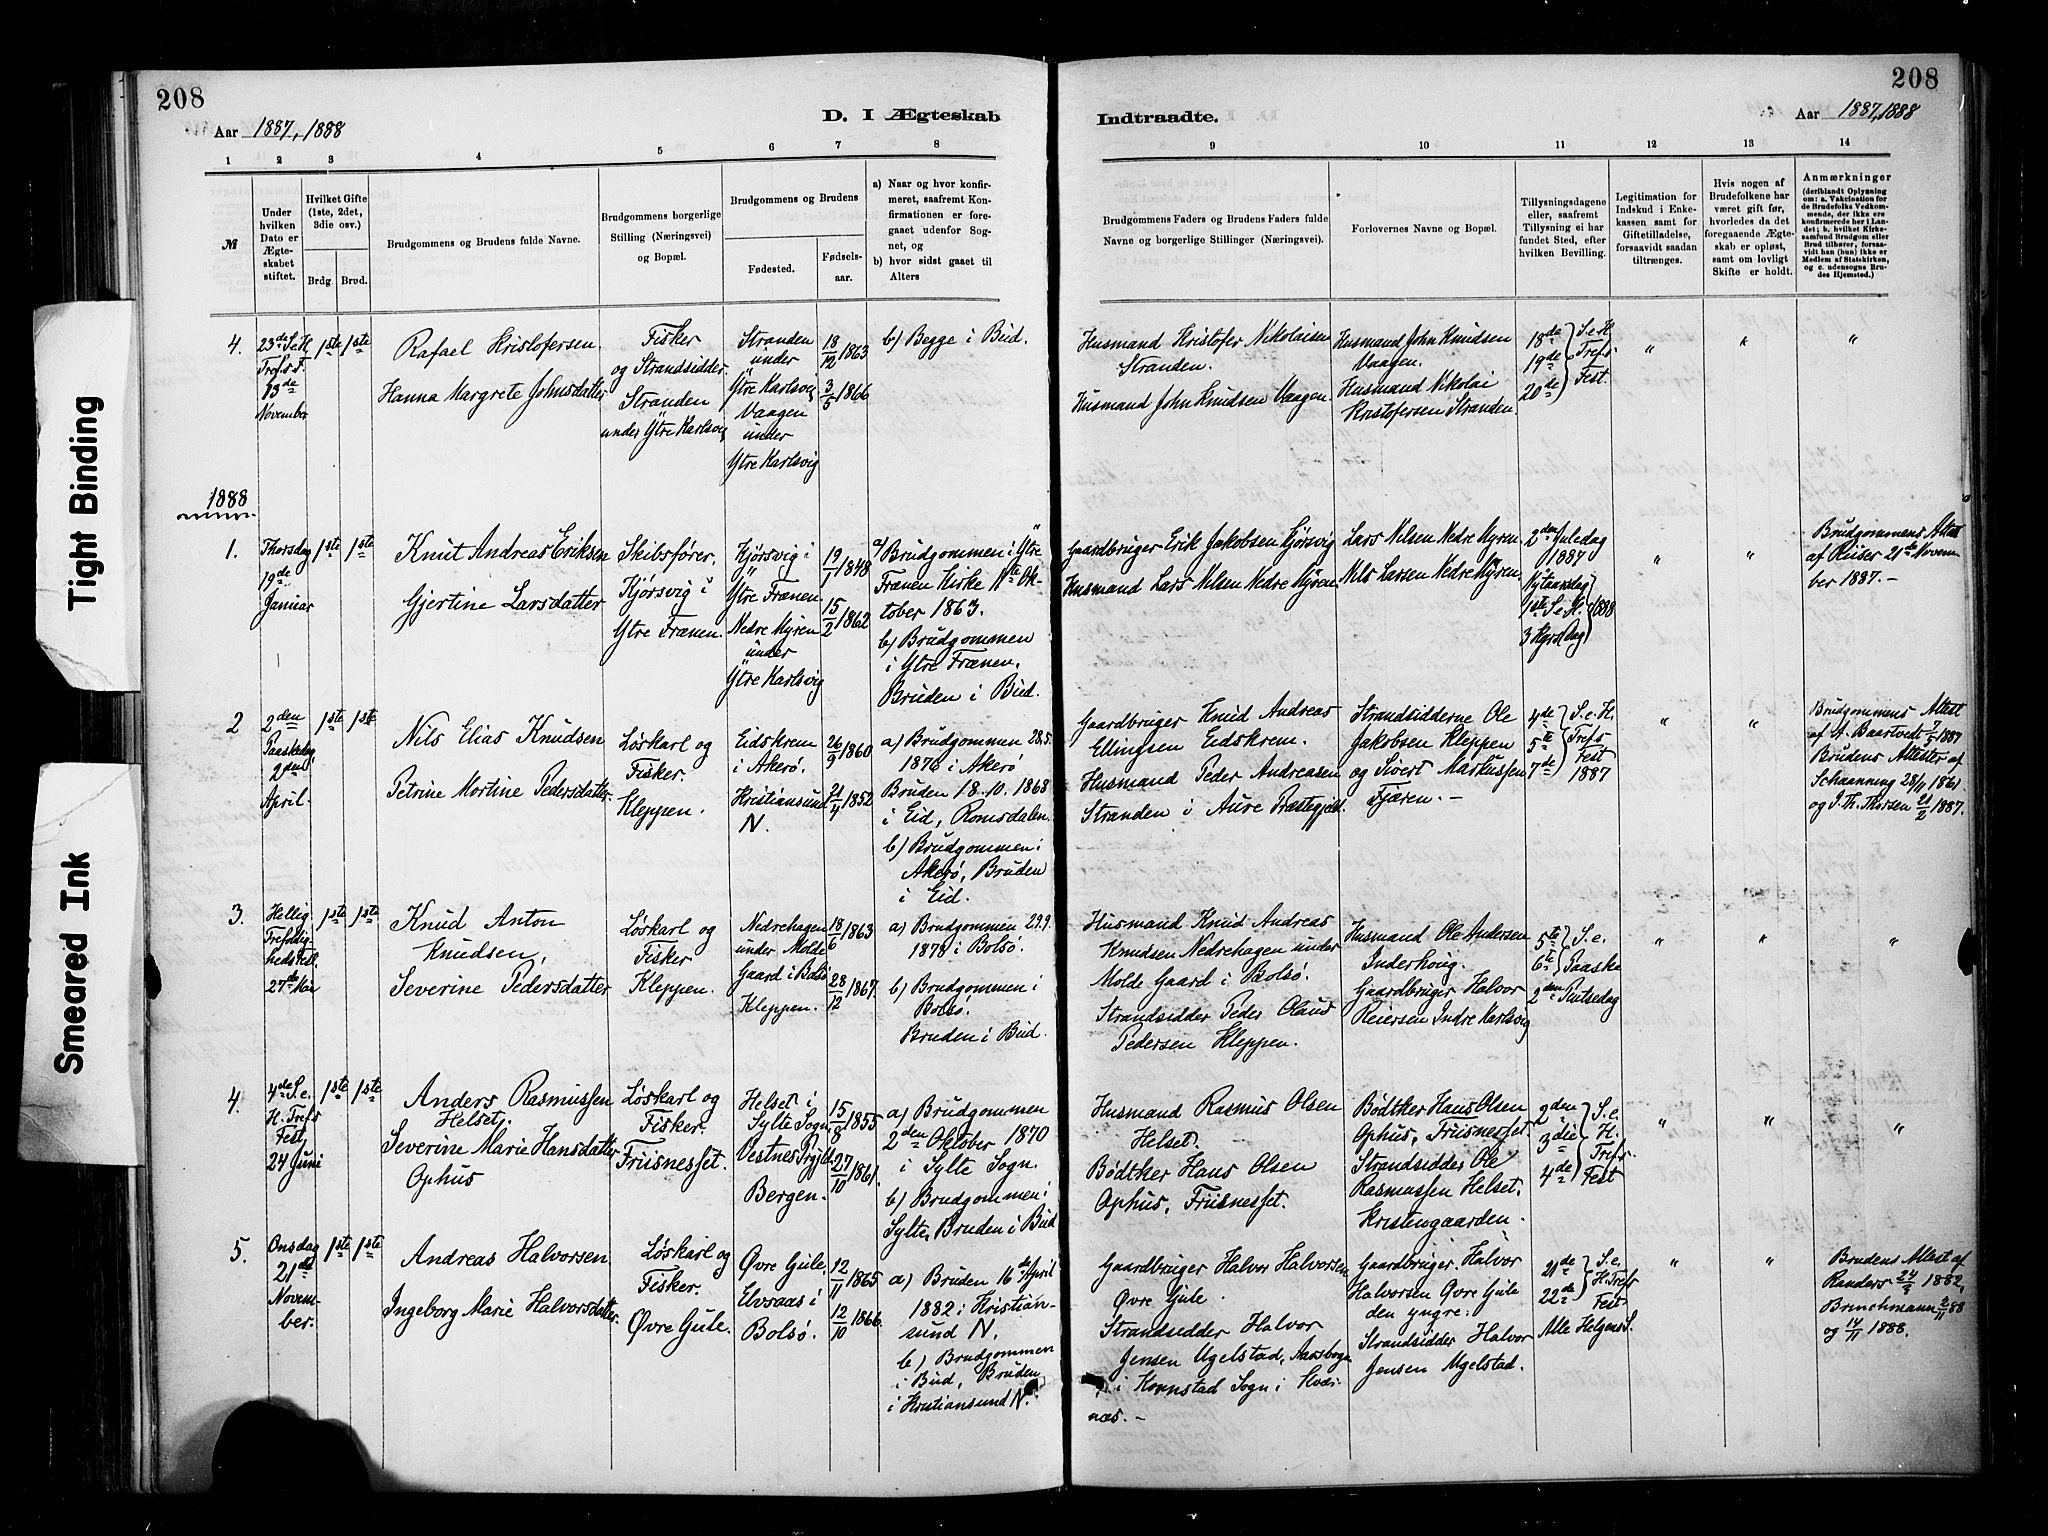 208
Aar 1887, 1888
D. I Ægteskab
1 2 3 4 5 6 7 8
№
Under hvilken Dato er Ægteskabet stiftet.
Hvilket Gifte (1ste, 2det, 3die osv.)
Brdg. Brud.
Brudgommens og Brudens fulde Navne.
Brudgommens borgerlige Stilling (Næringsvei) og Bopæl.
Brudgommens og Brudens
Fødested.
Fødselsaar.
a) Naar og hvor konfirmeret, saafremt Konfirmationen er foregaaet udenfor Sognet, og
b) hvor sidst gaaet til Alters
4.
23de S.e.H.
Trefs.f.
13de
November
1ste 1ste
Rafael Kristofersen
Hanna Margrete Johnsdatter
Fisker
og Strandsidder
Stranden
under Ytre Karlsvig
Stranden
under
Ytre Karlsvig
Vaagen
under
Ytre Karlsvig
18/12 1863
3/5 1866
b) Begge i Bud.
1888
1.
Thorsdag
19de
Januar
1ste 1ste
Knut Andreas Eriksen
Gjertine Larsdatter
Skibsfører.
Kjørsvig i
Ytre Frænen.
Kjørsvig i
Ytre Frænen.
Nedre Myren
under
Ytre Karlsvig
19/1 1848
15/2 1862
a) Brudgommen i Ytre
Frænen Kirke 11te Ok-
tober 1863.
b) Brudgommen
i Ytre Frænen.
Bruden i Bud.
2
2den
Paaskedag
2den
April.
1ste 1ste
Nils Elias Knudsen
Petrine Martine Pedersdatter.
Løskarl og
Fisker.
Kleppen.
Eidskrem
i Akerø.
Kristiansund
N.
26/9 1860
21/4 1852
a) Brudgommen 28.5.
1876 i Akerø
Bruden 18.10.1868
i Eid, Romsdalen.
b) Brudgommen i
Akerø, Bruden
i Eid.
3.
Hellig
Trefoldig-
hedsfest.
27de Mai
1ste 1ste
Knud Anton
Knudsen,
Severine Pedersdatter
Løskarl og
Fisker
Kleppen.
Nedrehagen
under Molde
Gaard i Bolsø
Kleppen.
18/6 1863
28/12 1867.
a) Brudgommen 29.9.
1878 i Bolsø.
b) Brudgommen i
Bolsø.
Bruden i Bud.
4.
4de S.e.
H. Trefs
Fest,
24 Juni
1ste 1ste
Anders Rasmussen
Helset.
Severine Marie Hansdatter
Ophus
Løskarl og
Fisker.
Friisnesset.
Helset i
Sylte Sogn
Vestnes Prgjld
Bergen.
15/8 1855
27/10 1861.
a) Brudgommen
2den Oktober 1870
i Sylte Sogn.
b) Brudgommen i
Sylte, Bruden i Bud
5.
Onsdag
21de
Novem-
ber.
1ste 1ste
Andreas Halvorsen
Ingeborg Marie Halvorsdatter.
Løskarl og
Fisker.
Øvre Gule.
Øvre Gule,
Elvsaas i
Bolsø.
12/11 1865
12/10 1866
a) Bruden 16de April
1882 i Kristian-
sund N.
b) Brudgommen
i Bud, Bruden
i Kristiansund N.
208
Indtraadte.
Aar 1887, 1888
9 10 11 12 13 14
Brudgommens Faders og Brudens Faders fulde Navne og borgerlige Stillinger (Næringsvei).
Forlovernes Navne og Bopæl.
Tillysningsdagene eller, saafremt Tillysning ei har fundet Sted, efter hvilken Bevilling.
Legitimation for Indskud i Enkekassen samt for Giftetilladelse, forsaavidt saadan tiltrænges.
Hvis nogen af Brudefolkene har været gift før, hvorledes da det foregaaende Ægteskab er opløst, samt om lovligt Skifte er holdt.
Anmærkninger
(deriblandt Oplysning om: a. Vakcination for de Brudefolks Vedkommende, der ikke ere konfirmerede her i Landet; b. hvilket Kirkesamfund Brudgom eller Brud tilhører, forsaavidt han (hun) ikke er Medlem af Statskirken, og c. udensogns Brudes Hjemsted.)
Husmand Kristofer Nikolaisen
Stranden.
Husmand John Knudsen Vaagen.
Husmand John Knudsen
Vaagen.
Husmand Nikolai
Kristofersen Stranden.
18de S.e.H.
19de Trefs.
20de Fest.
" " "
Gaardbruger Erik Jakobsen Kjørsvig
Husmand Lars Nilsen Nedre Myren.
Lars Nilsen Nedre Myren.
Nils Larsen Nedre Myren.
2den Juledag
1887
Nytaarsdag
1ste S.e.H. 1888
3 Kgrs Dag
" "
Brudgommens Attest
af Riiser 21de Novem-
ber 1887.-
Gaardbruger Knud Andreas
Ellingsen Eidskrem.
Husmand Peder Andreasen
Stranden i Aure Præstegjeld.
Strandsidderne Ole
Jakobsen Kleppen
og Sivert Markussen
Fjæren.-
4de S.e.H.
5te Trefs
7de Fest
1887
" "
Brudgommens Attest
Brudens Attester af
Husmand Knud Andreas
Knudsen Nedrehagen under
Molde Gaard i Bolsø.
Strandsidder Peder Olaus
Pedersen Kleppen.
Husmand Ole Andersen
Inderhoug.
Gaardbruger Halvor
Reiersen Indre Karlsvig
5te S.e.
6te Paaske
2den Pintsedag
" " "
Husmand Rasmus Olsen
Helset.
Bødtker Hans Olsen
Ophus, Friisnesset.
Bødtker Hans Olsen
Ophus, Friisnesset.
Strandsidder Ole
Rasmussen Helset,
Kristengaarden.
2den S.e.
3die H.
Trefs
4de Fest
" " "
Gaardbruger Halvor Halvorsen
Øvre Gule.
Strandsidder Halvor
Jensen Ugelstad, Aarsbogn
i Kornstad Sogn i Kvær-
næs.-
Gaardbruger, Halvor
Halvorsen Øvre Gule
den yngre.
Strandsidder Halvor
Jensen Ugelstad.
21de S.e.
H. Trefs
22de Fest
Alle Helgens S.
" "
Brudens Attest af
Randers 24/5 1882,
Brinchmann 2/11 88
og 14/11 1888.
Tight Binding
Smeared Ink